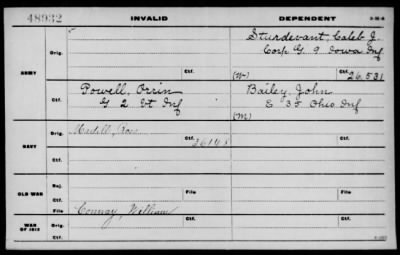 48932 INVALID DEPENDENT 3-36-6
Sturdevant, Caleb J.
Orig. Corp G. 9 Iowa Inf
ARMY (W) Ctf. 26,531
Powell, Orrin Bailey, John
Ctf. G 2 Inf E 35 Ohio Inf
(M)
Orig. Ctf. Ctf.
26148
NAVY
Ctf.
OLD WAR Rej. File File
Ctf.
File Conway, William
WAR OF 1812 Orig. Ctf. Ctf.
Ctf.